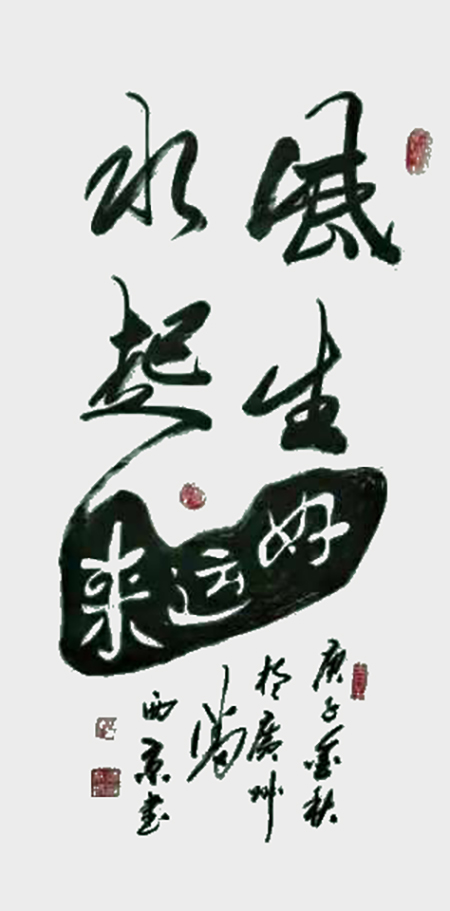 風生
水起
好运来
庚子金秋
於廣州
西京书